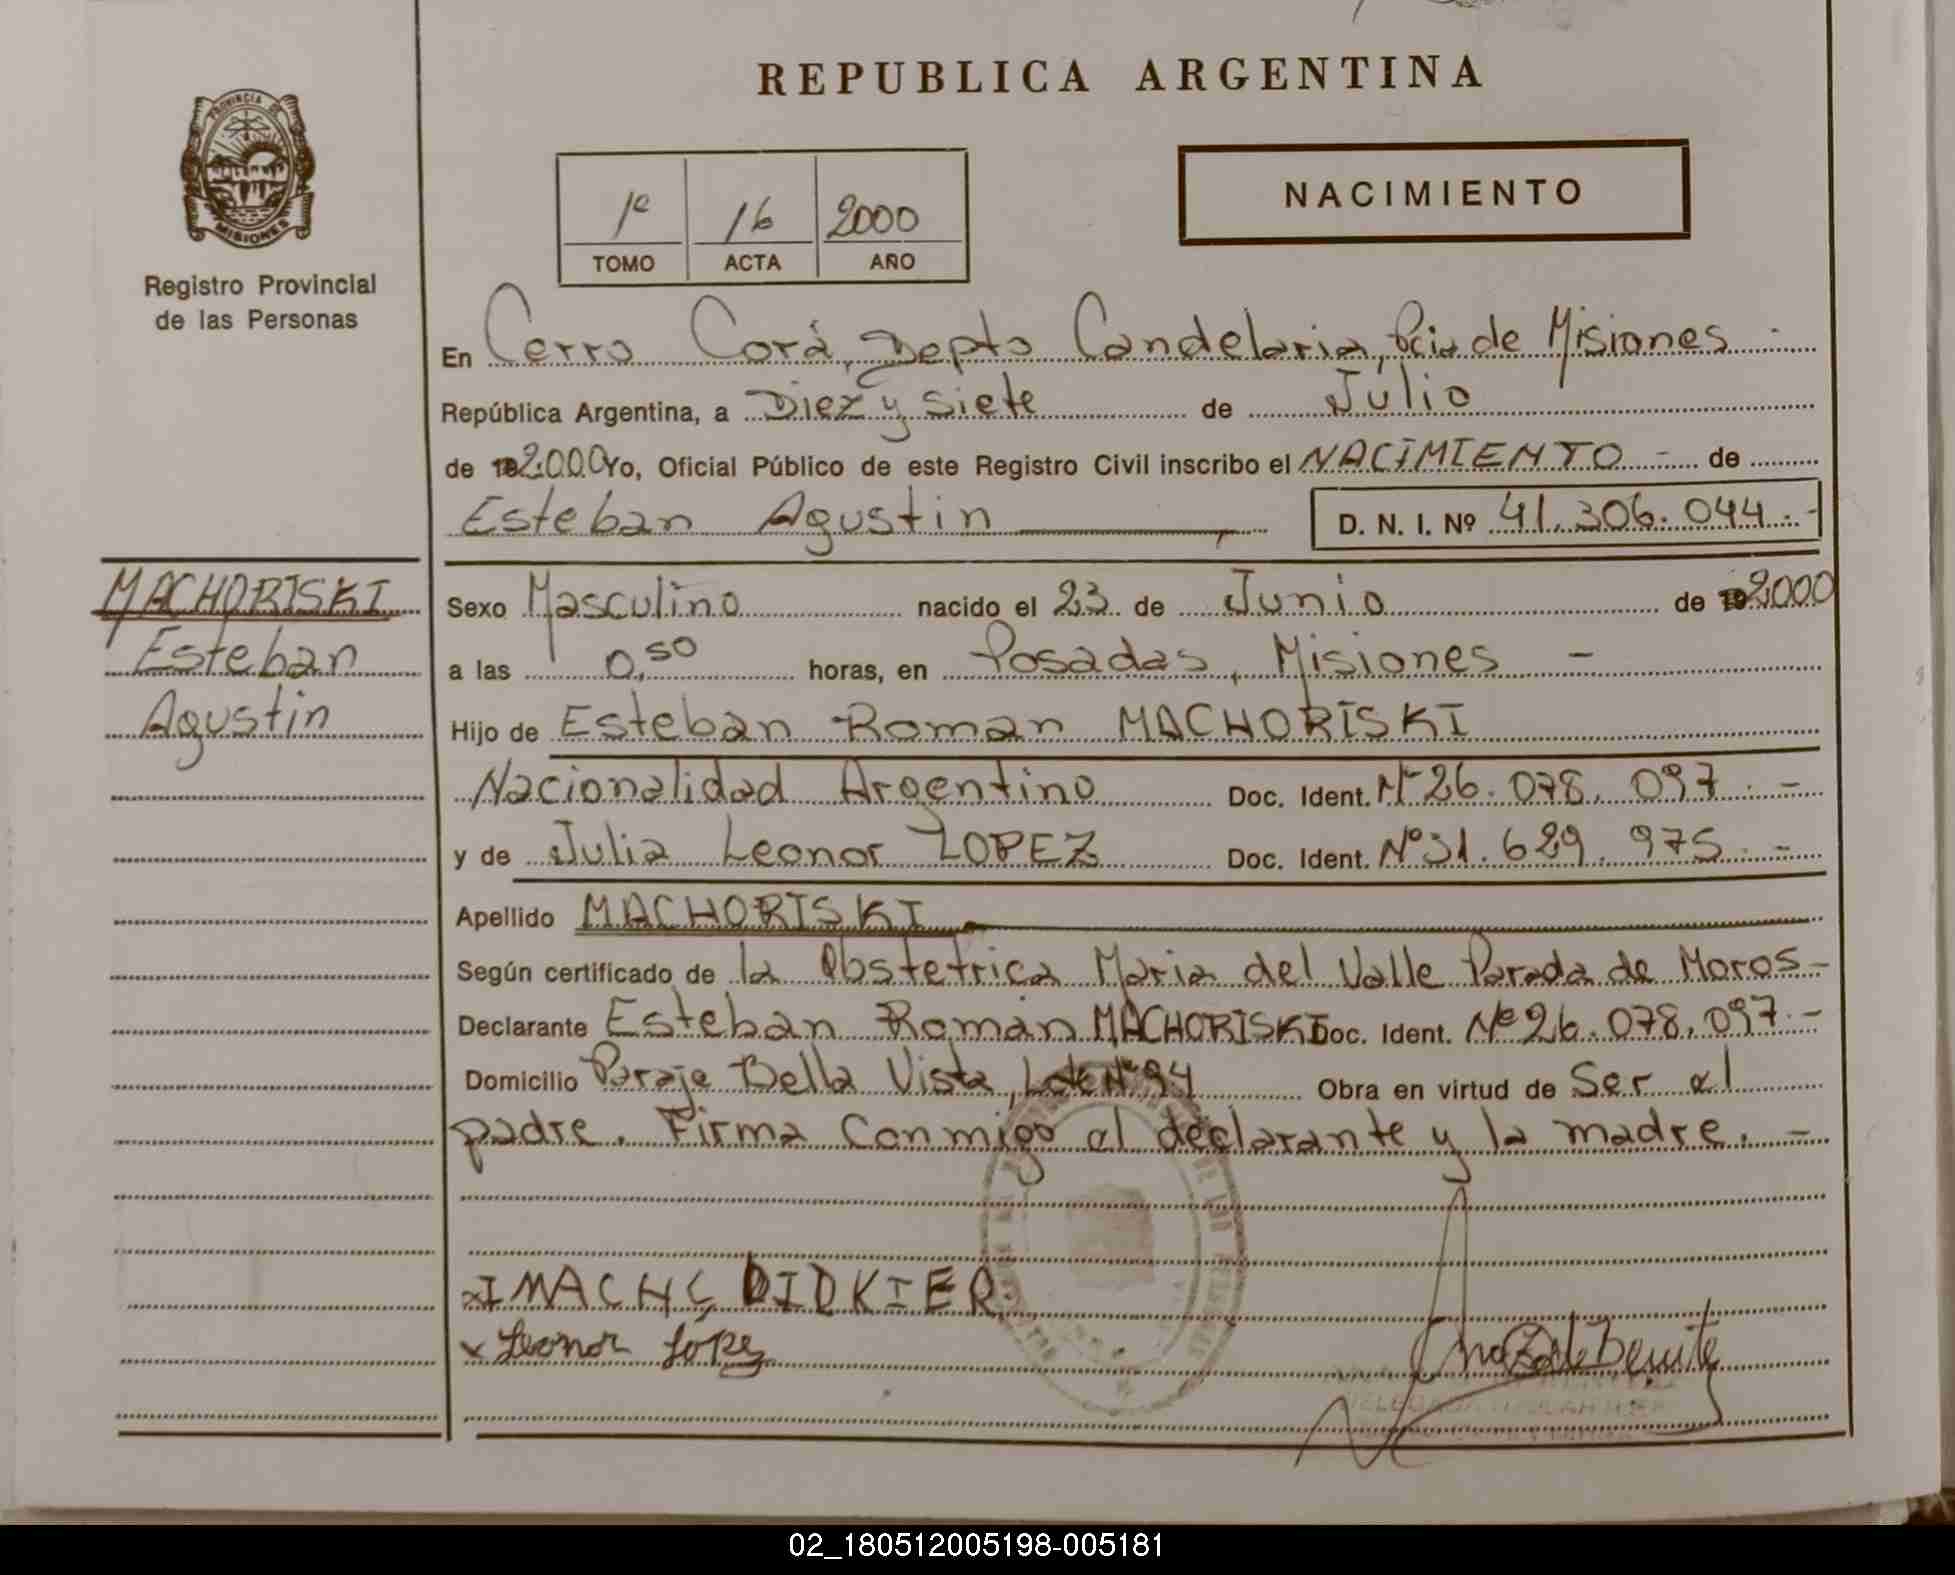 REPUBLICA ARGENTINA
PROVINCIA DE
MISIONES
Registro Provincial
de las Personas
1º 16 2000
TOMO ACTA AÑO
NACIMIENTO
En Cerro Corá, Depto Candelaria, Pcia de Misiones
República Argentina, a Diez y Siete de Julio
de 2000 Yo, Oficial Público de este Registro Civil inscribo el NACIMIENTO - de
Esteban Agustin D. N. I. Nº 41.306.044.-
MACHORISKI
Esteban
Agustin
Sexo Masculino nacido el 23 de Junio de 2000
a las 0,50 horas, en Posadas, Misiones -
Hijo de Esteban Roman MACHORISKI
Nacionalidad Argentino Doc. Ident. Nº 26.078.097.-
y de Julia Leonor LOPEZ Doc. Ident. Nº 31.629.975.-
Apellido MACHORISKI
Según certificado de la Obstetrica Maria del Valle Parada de Moros-
Declarante Esteban Román MACHORISKI Doc. Ident. Nº 26.078.097.-
Domicilio Paraje Bella Vista, Lote Nº 94 Obra en virtud de Ser el
padre. Firma Conmigo el declarante y la madre. -
x Leonor Lopez
02_180512005198-005181